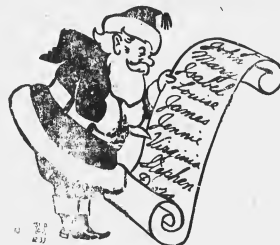 John
Mary
Isabel
Louise
James
Jennie
Virginia
Stephen